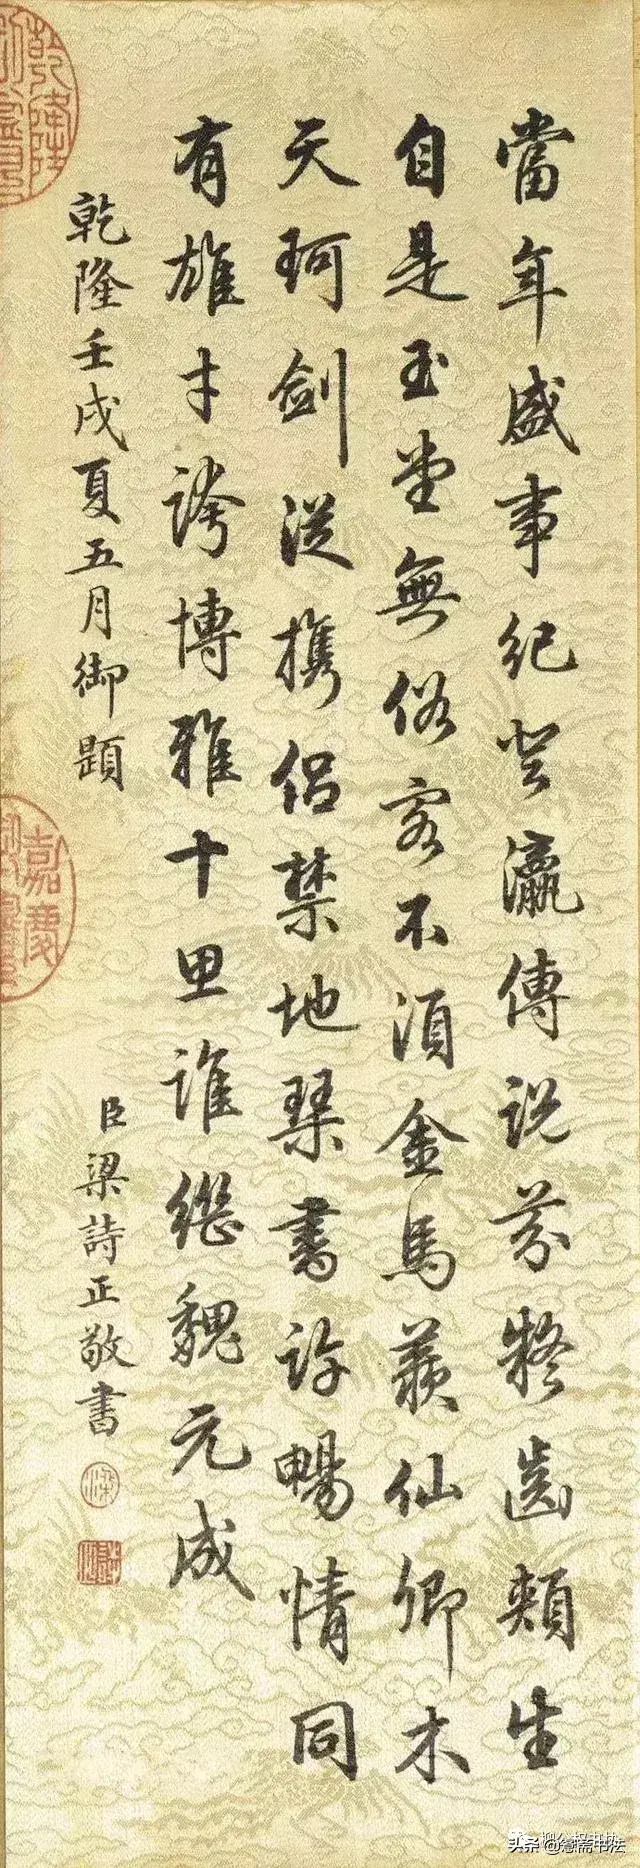 當年盛事紀登瀛傳說芬凝齒頰生
自是玉堂無俗客不須金馬羨仙卿木
天珂劍從攜侶禁地琴書許暢情同
有雄才誇博雅十思誰繼魏元成
乾隆壬戌夏五月御題
臣梁詩正敬書
乾隆
嘉慶
头条